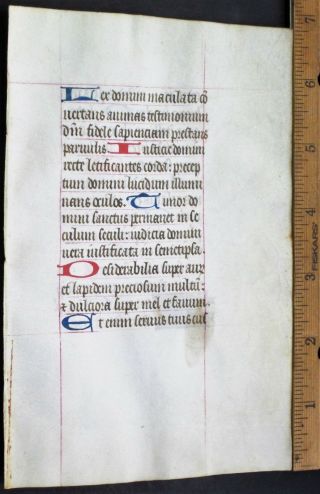 Lex domini maculata cō
uertens animas testimonium
dm̄ fidele sapienciam prestans
paruulis. Iusticie domini
recte letificantes corda: precep
tum domini lucidum illumi
nans oculos. Timor do
mini sanctus permanet in se
culum seculi: iudicia domini
uera iustificata in semetipsa.
Desiderabilia super aur
et lapidem preciosum multū:
⁊ dulciora super mel et fauum.
Et enim seruus tuus cus
7
6
5
4
3
2
1
FISKARS